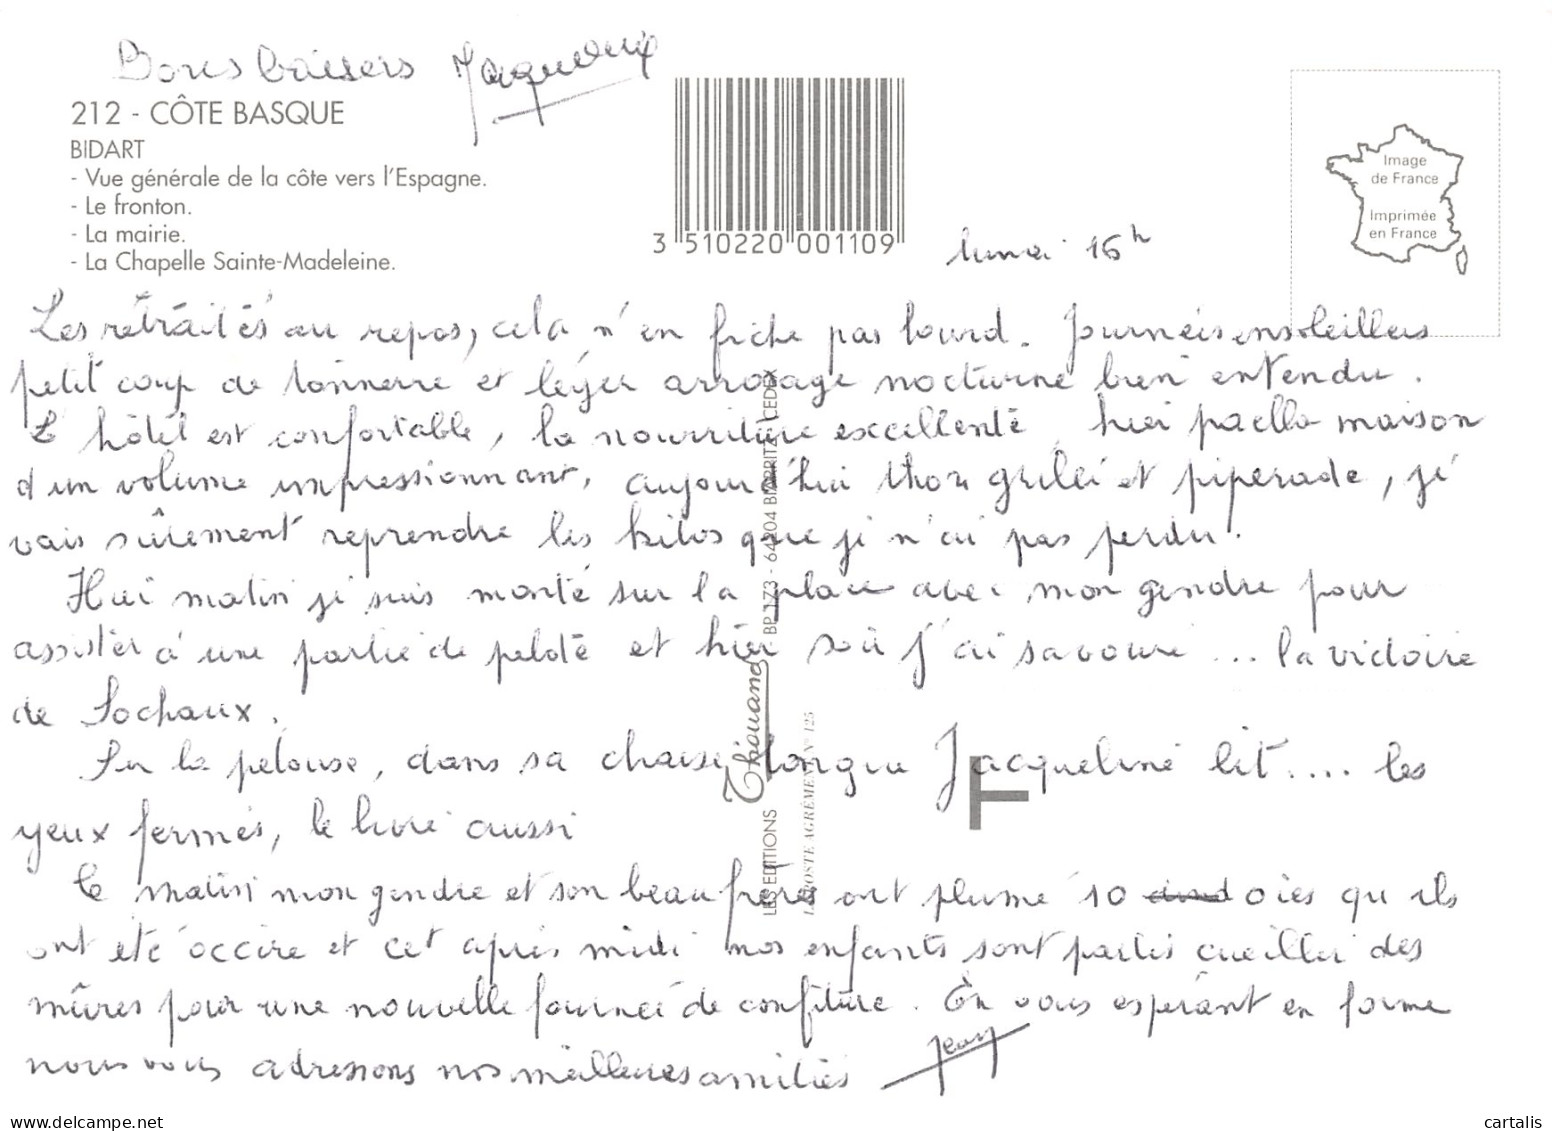 Bons baisers Jacqueline
212 - CÔTE BASQUE
BIDART
- Vue générale de la côte vers l'Espagne.
- Le fronton.
- La mairie.
- La Chapelle Sainte-Madeleine.
3 510220 001109
Image
de France
Imprimée
en France
lundi 16h
Les retraités au repos, cela n'en fiche pas lourd. Journées ensoleillées
petit coup de tonnerre et léger arrosage nocturne bien entendu.
L'hôtel est confortable, la nourriture excellente, hier paella maison
d'un volume impressionnant, aujourd'hui thon grillé et piperade, je
vais sûrement reprendre les kilos que je n'ai pas perdu.
Hier matin je suis monté sur la place avec mon gendre pour
assister à une partie de pelote et hier soir j'ai savouré... la victoire
de Sochaux.
Sur la pelouse, dans sa chaise longue Jacqueline lit.... les
yeux fermés, le livre aussi
Ce matin mon gendre et son beau frère ont plumé 10 oies qu'ils
ont été occire et cet après midi nos enfants sont partis cueillir des
mûres pour une nouvelle fournée de confiture. En vous espérant en forme
nous vous adressons nos meilleures amitiés Jean
LES EDITIONS Thouand BP 173 - 64204 BIARRITZ CEDEX
LA POSTE AGRÉMENT N° 125
T
delcampe.net
cartalis